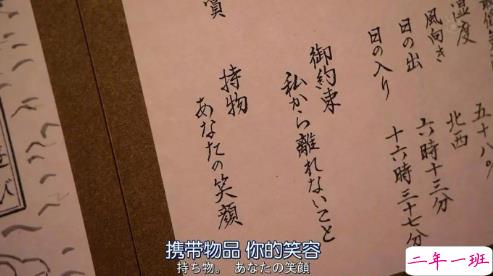 湿度 五十八%
風向き 北西
日の出 六時十三分
日の入り 十六時三十七分
御約束
私から離れないこと
持物
あなたの笑顔
賞
携带物品 你的笑容
持ち物。 あなたの笑顔
二年一班